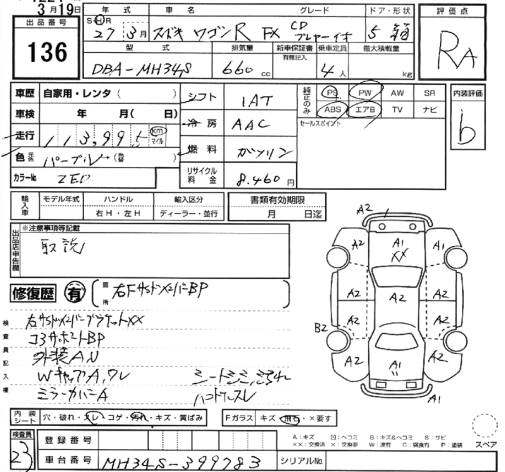 3月19日
出品番号 136
年式 車名 グレード ドア・形状 評価点
S・H・R 27年 3月 スズキ ワゴンR FX CDプレーヤー付 5 箱 RA
型式 排気量 新車保証書 有無記入 乗車定員 最大積載量
DBA-MH34S 660 cc 4人 kg
車歴 自家用・レンタ( ) シフト IAT 純正のみ PS PW AW SR 内装評価
車検 年 月(日) 冷房 AAC ABS エアB TV ナビ b
走行 113,995 km マイル 燃料 ガソリン セールスポイント
色 パープル
カラーNo ZED リサイクル料金 8,460円
輸入車 モデル年式 ハンドル 輸入区分 書類有効期限
右H・左H ディーラー・並行 月 日迄
出品店申告欄 ※注意事項等記載
取説
修復歴 有 箇所 右FサイドメンバーBP
検査員記入欄
右サイドメンバーブラケットXX
コアサポートBP
外装AU
WキャップA,ワレ
ミラーカバーA ハンドルスレ
A2 A1 A2
A2 XX A2
A2 A2 A2
A2 A2
B2 A1
内装シート 穴・破れ・スレ・コゲ・汚れ・キズ・黄ばみ Fガラス キズ・飛石・×要す
検査員 23 登録番号
A:キズ U:ヘコミ B:キズ&ヘコミ S:サビ
スペア
車台番号 MH34S-399783 シリアルNo.